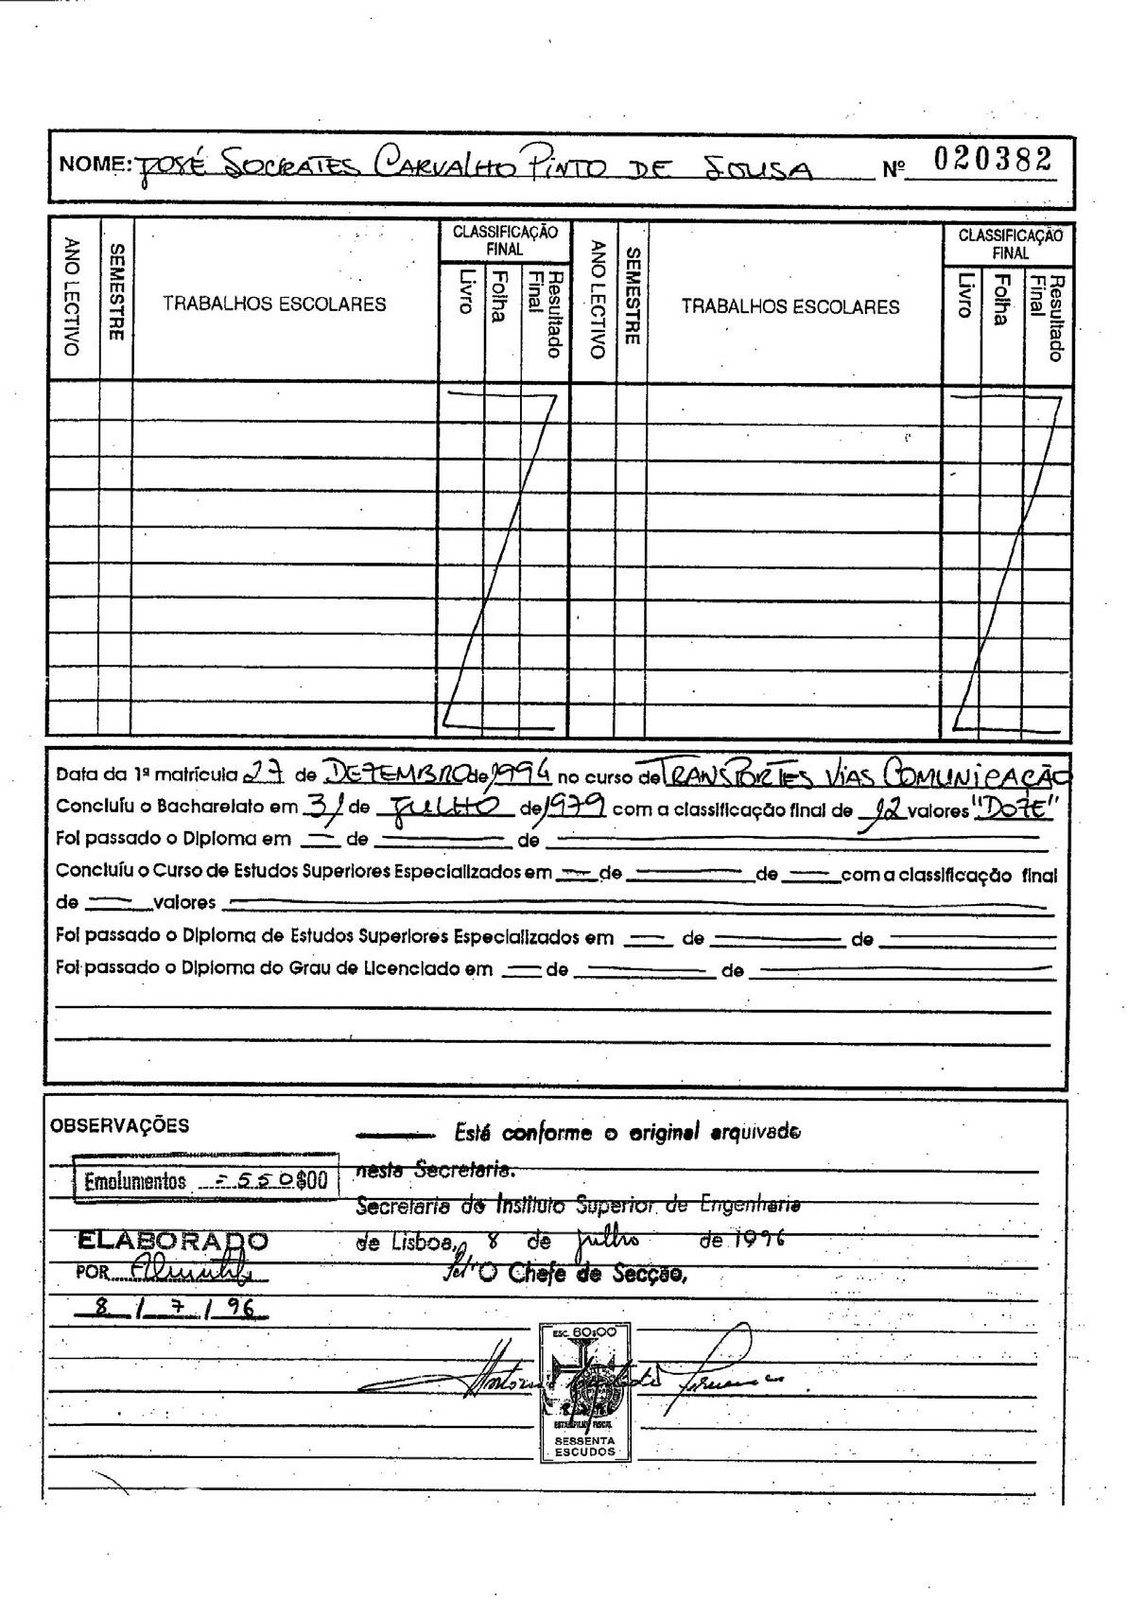 NOME: JOSÉ SOCRATES CARVALHO PINTO DE SOUSA Nº 020382
ANO LECTIVO SEMESTRE TRABALHOS ESCOLARES CLASSIFICAÇÃO FINAL Livro Folha Resultado Final ANO LECTIVO SEMESTRE TRABALHOS ESCOLARES CLASSIFICAÇÃO FINAL Livro Folha Resultado Final
Data da 1ª matrícula 27 de DEZEMBRO de 1994 no curso de TRANSPORTES VIAS COMUNICAÇÃO
Concluíu o Bacharelato em 31 de JULHO de 1979 com a classificação final de 12 valores "DOZE"
Foi passado o Diploma em — de — de —
Concluíu o Curso de Estudos Superiores Especializados em — de — de — com a classificação final
de — valores —
Foi passado o Diploma de Estudos Superiores Especializados em — de — de —
Foi passado o Diploma do Grau de Licenciado em — de — de —
OBSERVAÇÕES
Está conforme o original arquivado
nesta Secretaria.
Emolumentos = 550$00
Secretaria do Instituto Superior de Engenharia
de Lisboa, 8 de julho de 1996
ELABORADO
POR
Pel' O Chefe de Secção,
8 / 7 / 96
ESC. 60$00
António
ESTAMPILHA FISCAL
SESSENTA
ESCUDOS